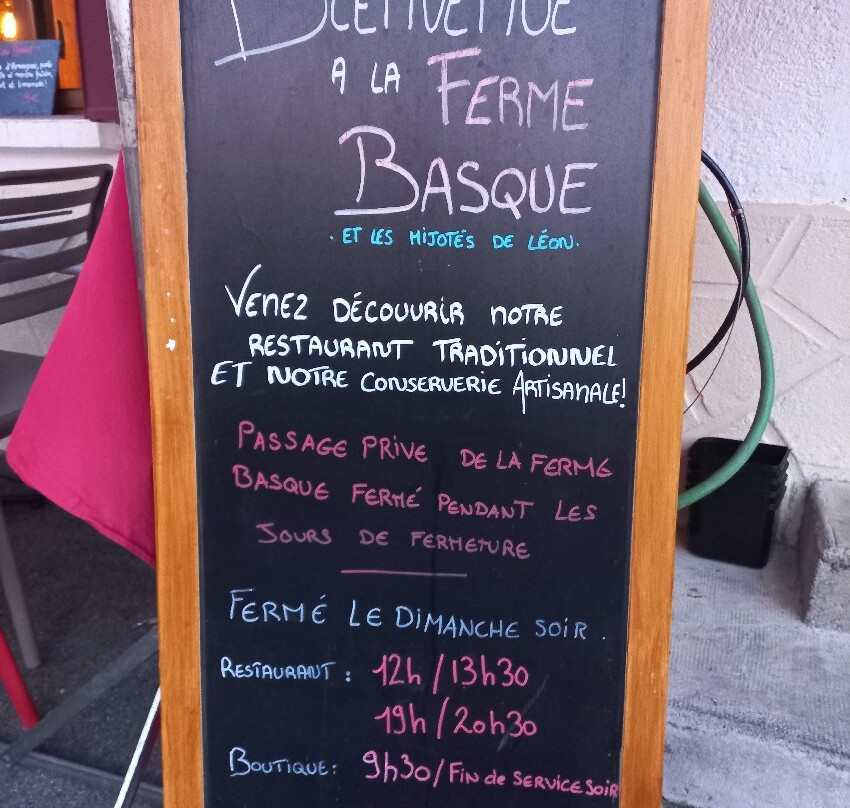 Bienvenue
A LA FERME
BASQUE
. ET LES MIJOTÉS DE LÉON.
VENEZ DÉCOUVRIR NOTRE
RESTAURANT TRADITIONNEL
ET NOTRE CONSERVERIE ARTISANALE!
PASSAGE PRIVE DE LA FERME
BASQUE FERMÉ PENDANT LES
JOURS DE FERMETURE
FERMÉ LE DIMANCHE SOIR.
RESTAURANT : 12h/13h30
19h/20h30
BOUTIQUE: 9h30/FIN de SERVICE SOIR